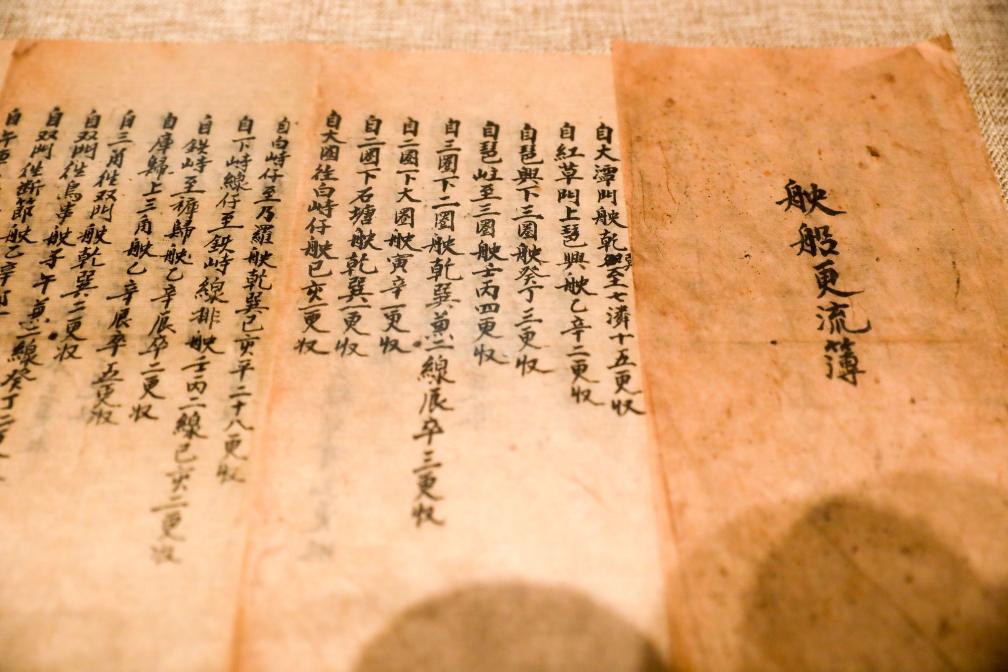 舦船更流簿
自大潭門舦乾巽至七潾十五更收
自紅草門上琶興舦乙辛二更收
自琶興下三圈舦癸丁三更收
自琶峙至三圈舦壬丙四更收
自三圈下二圈舦乾巽兼二線辰卒三更收
自二圈下大圈舦寅辛一更收
自二圈下石塘舦乾巽一更收
自大圈往白峙仔舦巳亥一更收
自白峙仔至乃羅舦乾巽巳亥平二十八更收
自下峙線仔至鉄峙線排舦壬丙二線巳亥二更收
自鉄峙至裤歸舦乙辛辰卒二更收
自庫歸上三角舦乙辛辰卒五更收
自三角往双門舦乾巽二更收
自双門往鳥
自双門往断節舦乙辛
自午